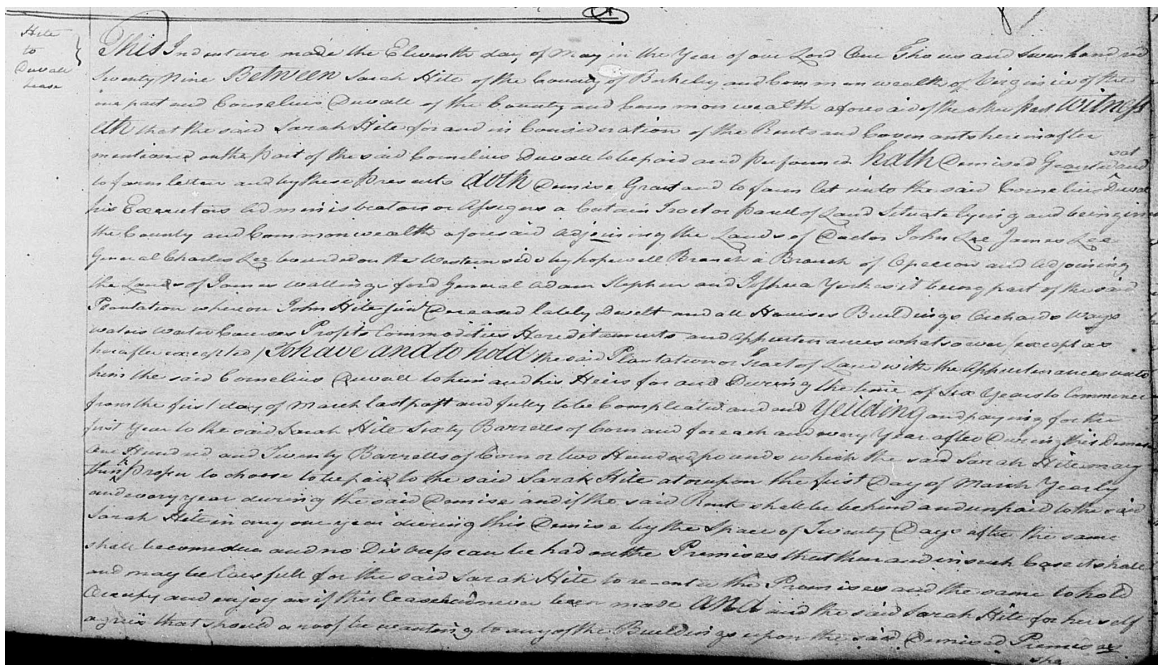 Hite
to
Duvall
Lease
This Indenture made the Eleventh day of May in the Year of our Lord One Thousand Seven hundred
Seventy Nine Between Sarah Hite of the County of Berkeley and Common wealth of Virginia of the
one part and Cornelius Duvall of the County and Common wealth aforesaid of the other part Witness
eth that the said Sarah Hite for and in Consideration of the Rent and Covenants herein after
mentioned on the Part of the said Cornelius Duvall to be paid and performed hath Demised Granted and set
to farm letten and by these Presents doth Demise Grant and to farm let unto the said Cornelius Duval
his Executors administrators or Assigns a Certain Tract or parcel of Land Situate lying and being in
the County and Common wealth aforesaid adjoining the Lands of Doctor John Lee James Lee
General Charles Lee bounded on the Western side by hopewell Branch a Branch of Opeccon and Adjoining
the Lands of James Wallingsford General Adam Stephen and Joshua Yorkes it being part of the said
Plantation whereon John Hite Junr Deceased lately Dwelt and all Houses Buildings Orchards Ways
waters Water Courses Profits Commodities Hereditaments and Appurtenances whatsoever (except as
hereafter excepted) To have and to hold the said Plantation or Tract of Land with the Appurtenances unto
him the said Cornelius Duvall to him and his Heirs for and During the time of Six Years to Commence
from the first day of March last past and fully to be Compleated and and Yeilding and paying for the
first Year to the said Sarah Hite Sixty Barrells of Corn and for each and every Year after During this Demise
One Hundred and Twenty Barrells of Corn or two Hundred pounds which the said Sarah Hite may
think proper to choose to be paid to the said Sarah Hite at or upon the first Day of March Yearly
and every year during the said Demise and if the said Rent shall be behind and unpaid to the said
Sarah Hite in any one year during this Demise by the Space of Twenty Days after the same
shall become due and no Distress can be had on the Premises that then and in such Case it shall
and may be lawfull for the said Sarah Hite to re-enter the Premises and the same to hold
Occupy and enjoy as if this lease had never been made And and the said Sarah Hite for herself
agrees that should a roof be wanting to any of the Buildings upon the said Demised Premises
sha